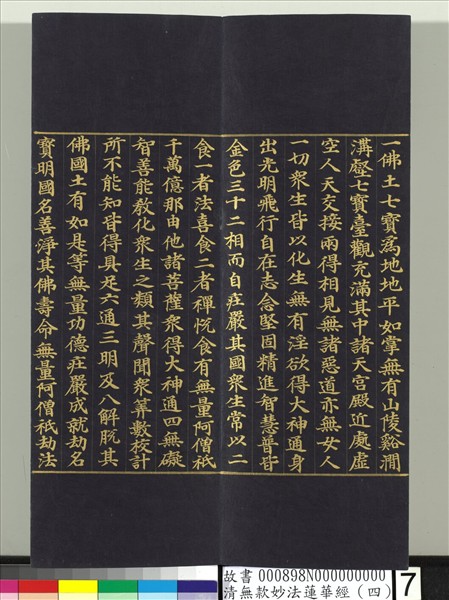 一佛土七寶為地地平如掌無有山陵谿澗
溝壑七寶臺觀充滿其中諸天宮殿近處虛
空人天交接兩得相見無諸惡道亦無女人
一切眾生皆以化生無有淫欲得大神通身
出光明飛行自在志念堅固精進智慧普皆
金色三十二相而自莊嚴其國眾生常以二
食一者法喜食二者禪悅食有無量阿僧祇
千萬億那由他諸菩薩眾得大神通四無礙
智善能教化眾生之類其聲聞眾筭數挍計
所不能知皆得具足六通三明及八解脫其
佛國土有如是等無量功德莊嚴成就劫名
寶明國名善淨其佛壽命無量阿僧祇劫法
故書 000898N000000000
清無款妙法蓮華經（四）
7